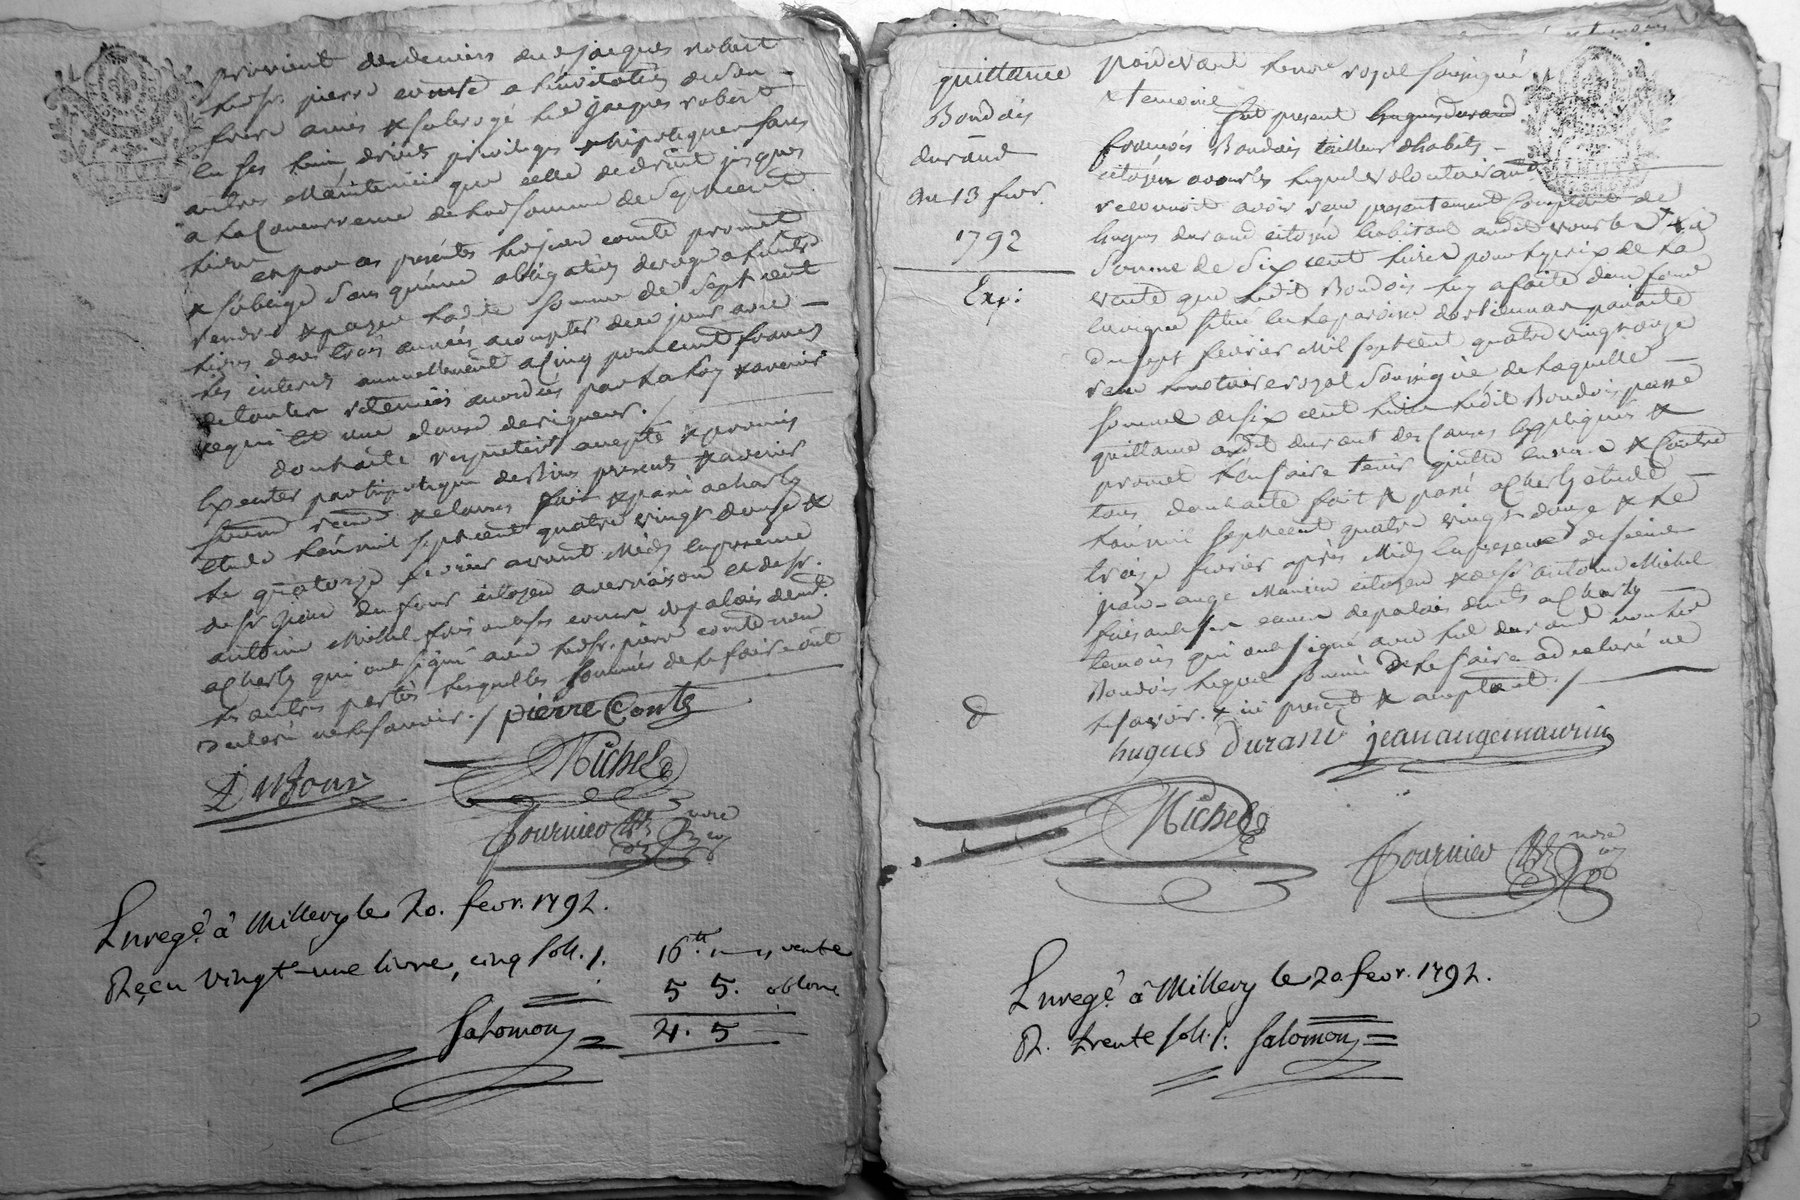 provient des deniers du d jacques robert
led sr. pierre comte a linvitation du son
frere amis & subrogé led jacques robert
en ses lieu droits privileges & hipoteques sans
autres maintenue que celle de droit jusques
a la Concurrence de lad somme de Sept cent
livres
et par ces presentes led sieur comte promet
& soblige sans qu'une obligation deroge a lautre
rendre & payer lad te somme de sept cent
livres dans trois années a compter de ce jour avec
les interets annuellement a cinq pour cent francs
de toutes retenües accordées par la loy & avenir
ce qui est une clause de rigueur. /
dont acte respectiv accepté & promis
Executer par hipoteque des biens presents & avenir
& clauses fait & passé a charly
etude l'an mil sept cent quatre vingt douze &
le quatorze fevrier avant Midy en presence
de sr jean du four citoyen a vernaison et de sr.
antoine Michel fais ant ses cour de palais demt.
a Charly qui ont signé avec led sr. pierre comte non
les autres parties lesquelles sommés de le faire ont
declaré ne le savoir. / pierre Comte
Dufour Michel
fournier nore
Enregé. à Millery le 20. fevr. 1792.
Reçu vingt-une livre, cinq sols. /. 16.tt vente
5 5. oblone
Salomon 21. 5
quittance
Boudois
durand
Du 13 fevr.
1792
Exp:
pardevant le nore royal soussigné
& temoins
fut present hugues durand
françois Boudois tailleur d'habits
citoyen a vourles lequel volontairemt
reconnoit avoir reçu presentement comptant de
hugues durand citoyen habitant aud vourles & la
somme de six cent livres pour le prix de la
vente que ledit Boudois luy a faite d'un fond
en vigne situé en la paroisse d'orlienas par acte
du sept fevrier Mil sept cent quatre vingt onze
reçu le notaire royal soussigné de laquelle
somme de six cent livres ledit Boudois passe
quittance audit durand des Causes Expliquées &
promet l'en faire tenir quitte envers & Contre
tous dont acte fait & passé a Charly etude
l'an mil sept cent quatre vingt douze & le
treize fevrier après Midy en presence de sieur
jean-ange Maurin citoyen & de sr antoine Michel
fais ant ses cour de palais demts a Charly
temoins qui ont signé avec led durand non led
Boudois lequel sommé de le faire a declaré ne
le savoir. & ici present & acceptant. /
hugues Durand jean ange maurin
Michel
fournier nore
Enregé. à Millery le 20 fevr. 1792.
R. trente sols. /. Salomon